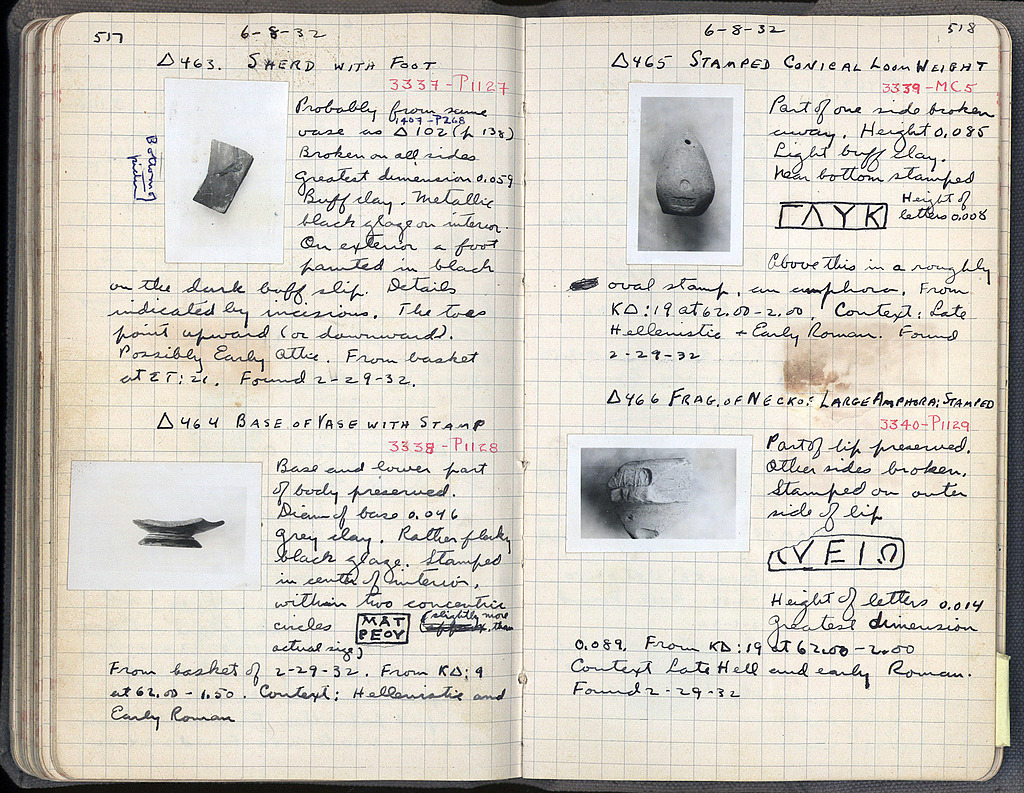 517
6-8-32
Δ463. SHERD WITH FOOT
3337-P1127
Probably from same
1407-P268
vase as Δ102 (p 138)
Broken on all sides
Greatest dimension 0.059
Buff clay. Metallic
black glaze on interior.
On exterior a foot
painted in black
on the dark buff slip. Details
indicated by incisions. The toes
point upward (or downward).
Possibly Early Attic. From basket
at ET:21. Found 2-29-32.
Bottom of
picture
Δ464 BASE OF VASE WITH STAMP
3338-P1128
Base and lower part
of body preserved.
Diam of base 0.046
Grey clay. Rather flaky
black glaze. Stamped
in center of interior,
within two concentric
circles
ΜΑΤ
ΡΕΟΥ
(slightly more
than
actual size)
From basket of 2-29-32. From ΚΔ:9
at 62.00-1.50. Context: Hellenistic and
Early Roman
6-8-32
518
Δ465 STAMPED CONICAL LOOM WEIGHT
3339-MC5
Part of one side broken
away. Height 0.085
Light buff clay.
Near bottom stamped
ΓΛΥΚ
Height of
letters 0.008
Above this in a roughly
oval stamp, an amphora. From
ΚΔ:19 at 62.00-2.00. Context: Late
Hellenistic + Early Roman. Found
2-29-32
Δ466 FRAG. OF NECK OF LARGE AMPHORA: STAMPED
3340-P1129
Part of lip preserved.
Other sides broken.
Stamped on outer
side of lip
VEIΩ
Height of letters 0.014
Greatest dimension
0.089. From ΚΔ:19 at 62.00-2.00
Context Late Hell and early Roman.
Found 2-29-32